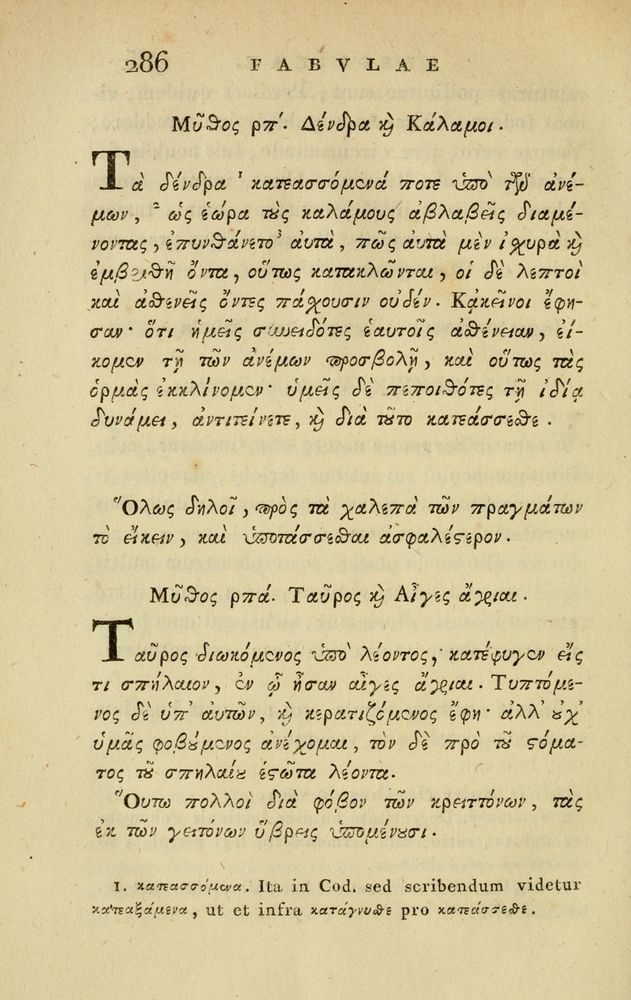 286 FABVLAE
Μῦθος ρπ΄. Δένδρα καὶ Κάλαμοι.
Τὰ δένδρα ¹ κατεασσόμενά ποτε ὑπὸ τῶν ἀνέ-
μων, ² ὡς ἑώρα τοὺς καλάμους ἀβλαβεῖς διαμέ-
νοντας, ἐπυνθάνετο ³ αὐτὰ, πῶς αὐτὰ μὲν ἰσχυρὰ καὶ
ἐμβριθῆ ὄντα, οὕτως κατακλῶνται, οἱ δὲ λεπτοὶ
καὶ ἀσθενεῖς ὄντες πάσχουσιν οὐδέν. Κἀκεῖνοι ἔφη-
σαν· ὅτι ἡμεῖς συνειδότες ἑαυτοῖς ἀσθένειαν, εἴ-
κομεν τῇ τῶν ἀνέμων προσβολῇ, καὶ οὕτως τὰς
ὁρμὰς ἐκκλίνομεν· ὑμεῖς δὲ πεποιθότες τῇ ἰδίᾳ
δυνάμει, ἀντιτείνετε, καὶ διὰ τοῦτο κατεάσσεσθε.
Ὅλως δηλοῖ, πρὸς τὰ χαλεπὰ τῶν πραγμάτων
τὸ εἴκειν, καὶ ὑποτάσσεσθαι ἀσφαλέστερον.
Μῦθος ρπά. Ταῦρος καὶ Αἶγες ἄγριαι.
Ταῦρος διωκόμενος ὑπὸ λέοντος, κατέφυγεν εἴς
τι σπήλαιον, ἐν ᾧ ἦσαν αἶγες ἄγριαι. Τυπτόμε-
νος δὲ ὑπ' αὐτῶν, καὶ κερατιζόμενος ἔφη· ἀλλ' οὐχ'
ὑμᾶς φοβούμενος ἀνέχομαι, τὸν δὲ πρὸ τοῦ στόμα-
τος τοῦ σπηλαίου ἑστῶτα λέοντα.
Οὕτω πολλοὶ διὰ φόβον τῶν κρειττόνων, τὰς
ἐκ τῶν γειτόνων ὕβρεις ὑπομένουσι.
1. κατεασσόμενα. Ita in Cod. sed scribendum videtur
κατεαξάμενα, ut et infra κατάγνυσθε pro κατεάσσεσθε.